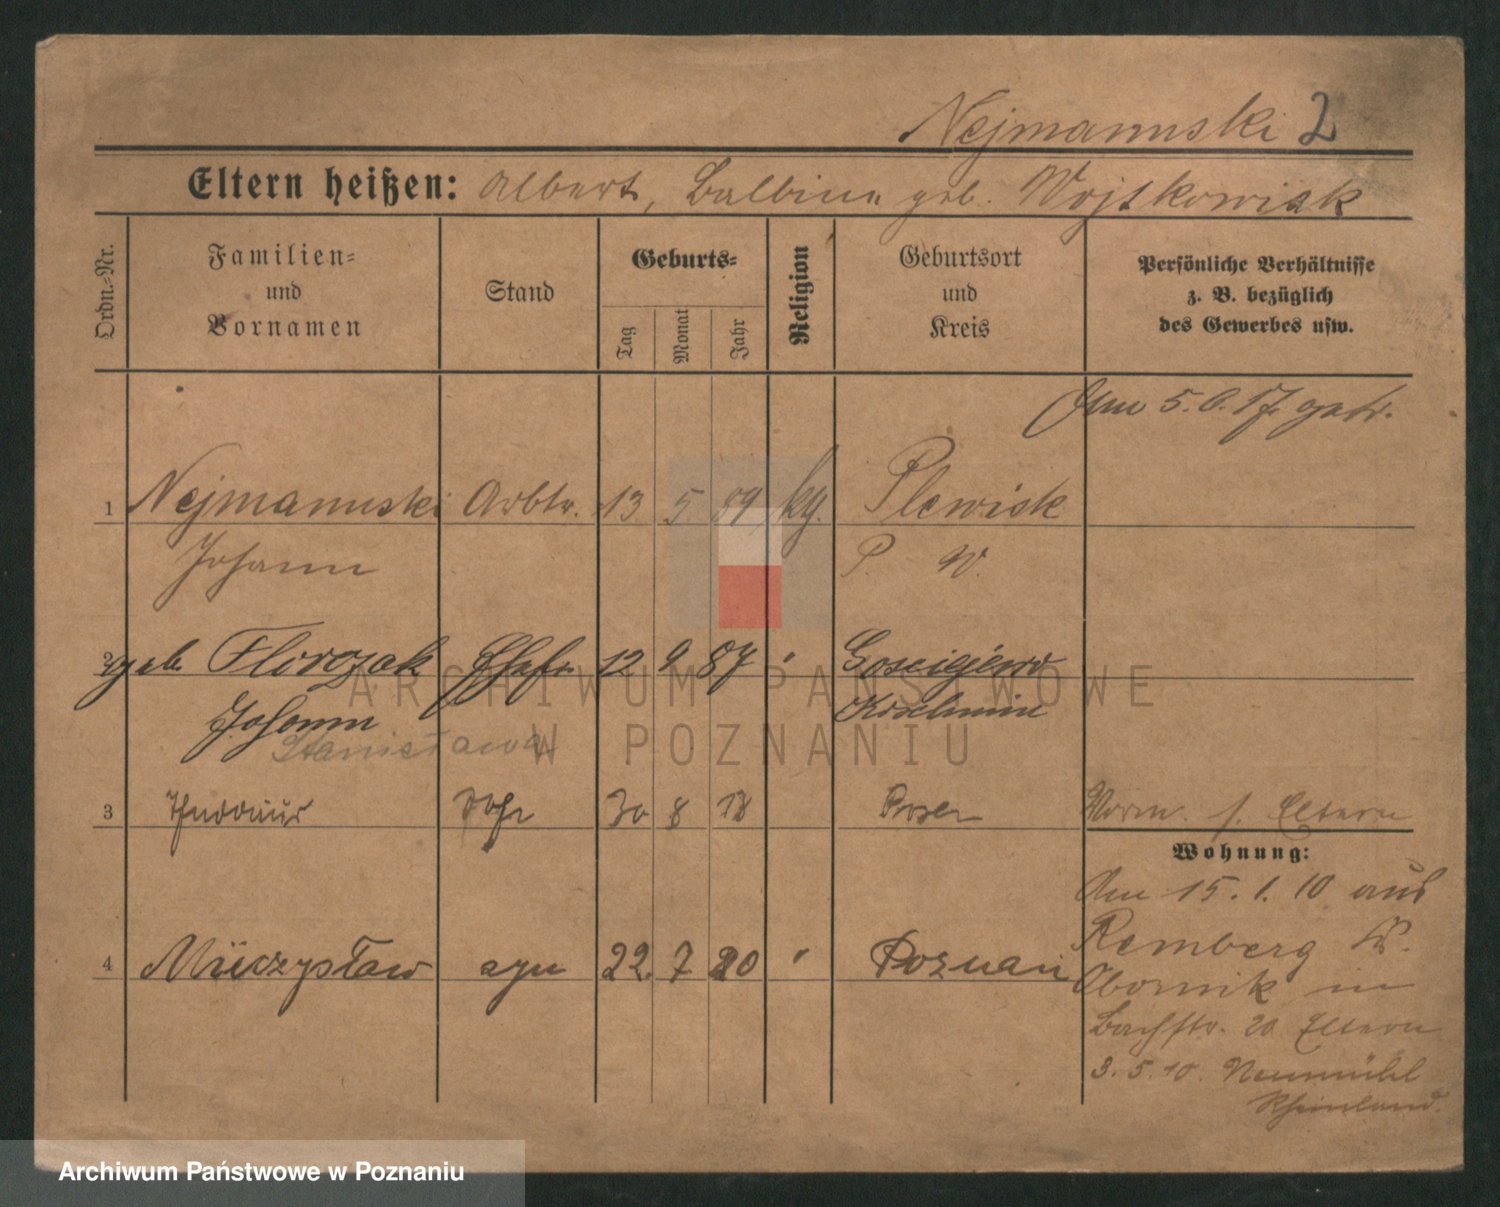 Nejmannski 2
Eltern heißen: Albert, Balbina geb. Wojtkowiak
Ordn.-Nr.
Familien-
und
Vornamen
Stand
Geburts-
Tag
Monat
Jahr
Religion
Geburtsort
und
Kreis
Persönliche Verhältnisse
z. B. bezüglich
des Gewerbes usw.
Am 5. 6. 17 getr.
1 Nejmannski Arbtr. 13 5 89 kg. Plewisk
Johann P. W.
2 geb. Florczak Ehefr. 12 9 87 " Gosciejewo
Johanna
Stanisława
3 30 8 18 Posen Worm. s. Eltern
Wohnung:
Am 15. 1. 10 aus
Remberg Kr.
Obornik in
Bachstr. 20 Eltern
3. 5. 10. Neumühl
Rheinland.
4 Mieczysław syn 22. 7 20 " Poznań
ARCHIWUM PAŃSTWOWE
W POZNANIU
Archiwum Państwowe w Poznaniu